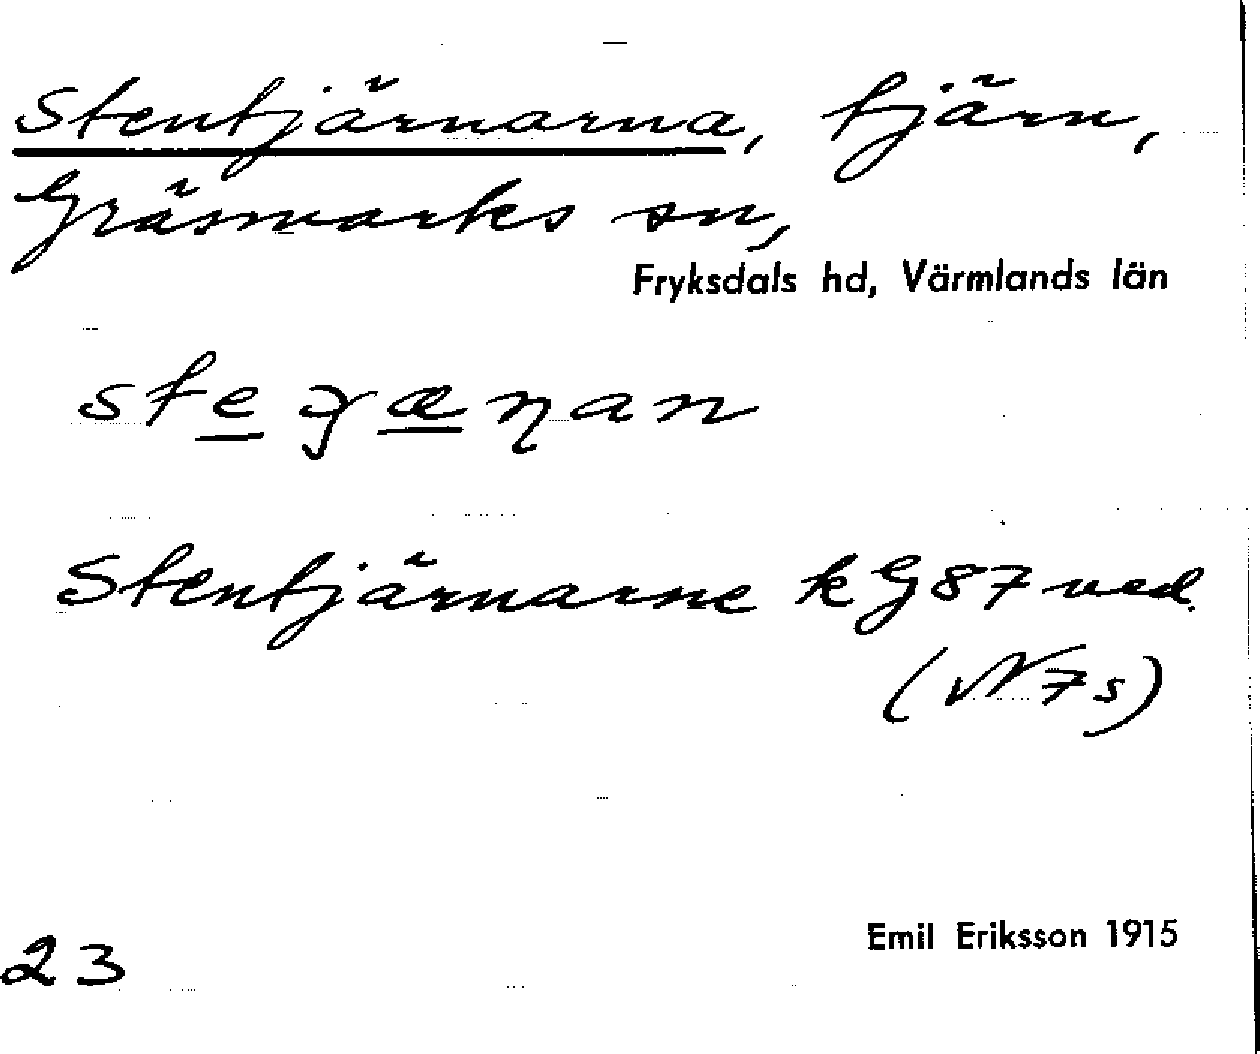 Stentjärnarna, tjärn,
Gräsmarks sn,
Fryksdals hd, Värmlands län
Stentjärnarne k G 87 ved.
23
Emil Eriksson 1915